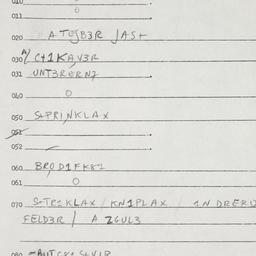 010
0
011
020 A TOJB3R JAST
030 A/ C+1KAV3R
031 UNT3RERN7
040 0
050 S+PRINKLAX
051
052
060 BROD1FK81
061 0
070 S+TR1KLAX / KN1PLAX 1N DRERU
FELD3R / A 2GUL3
080